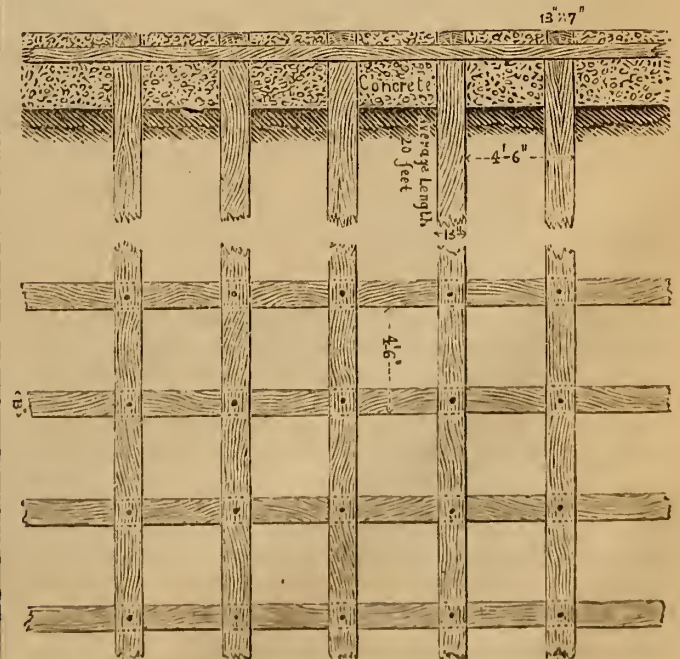 13"×7"
Concrete
Average Length
20 feet
4'-6"
13"
4'6"
13"